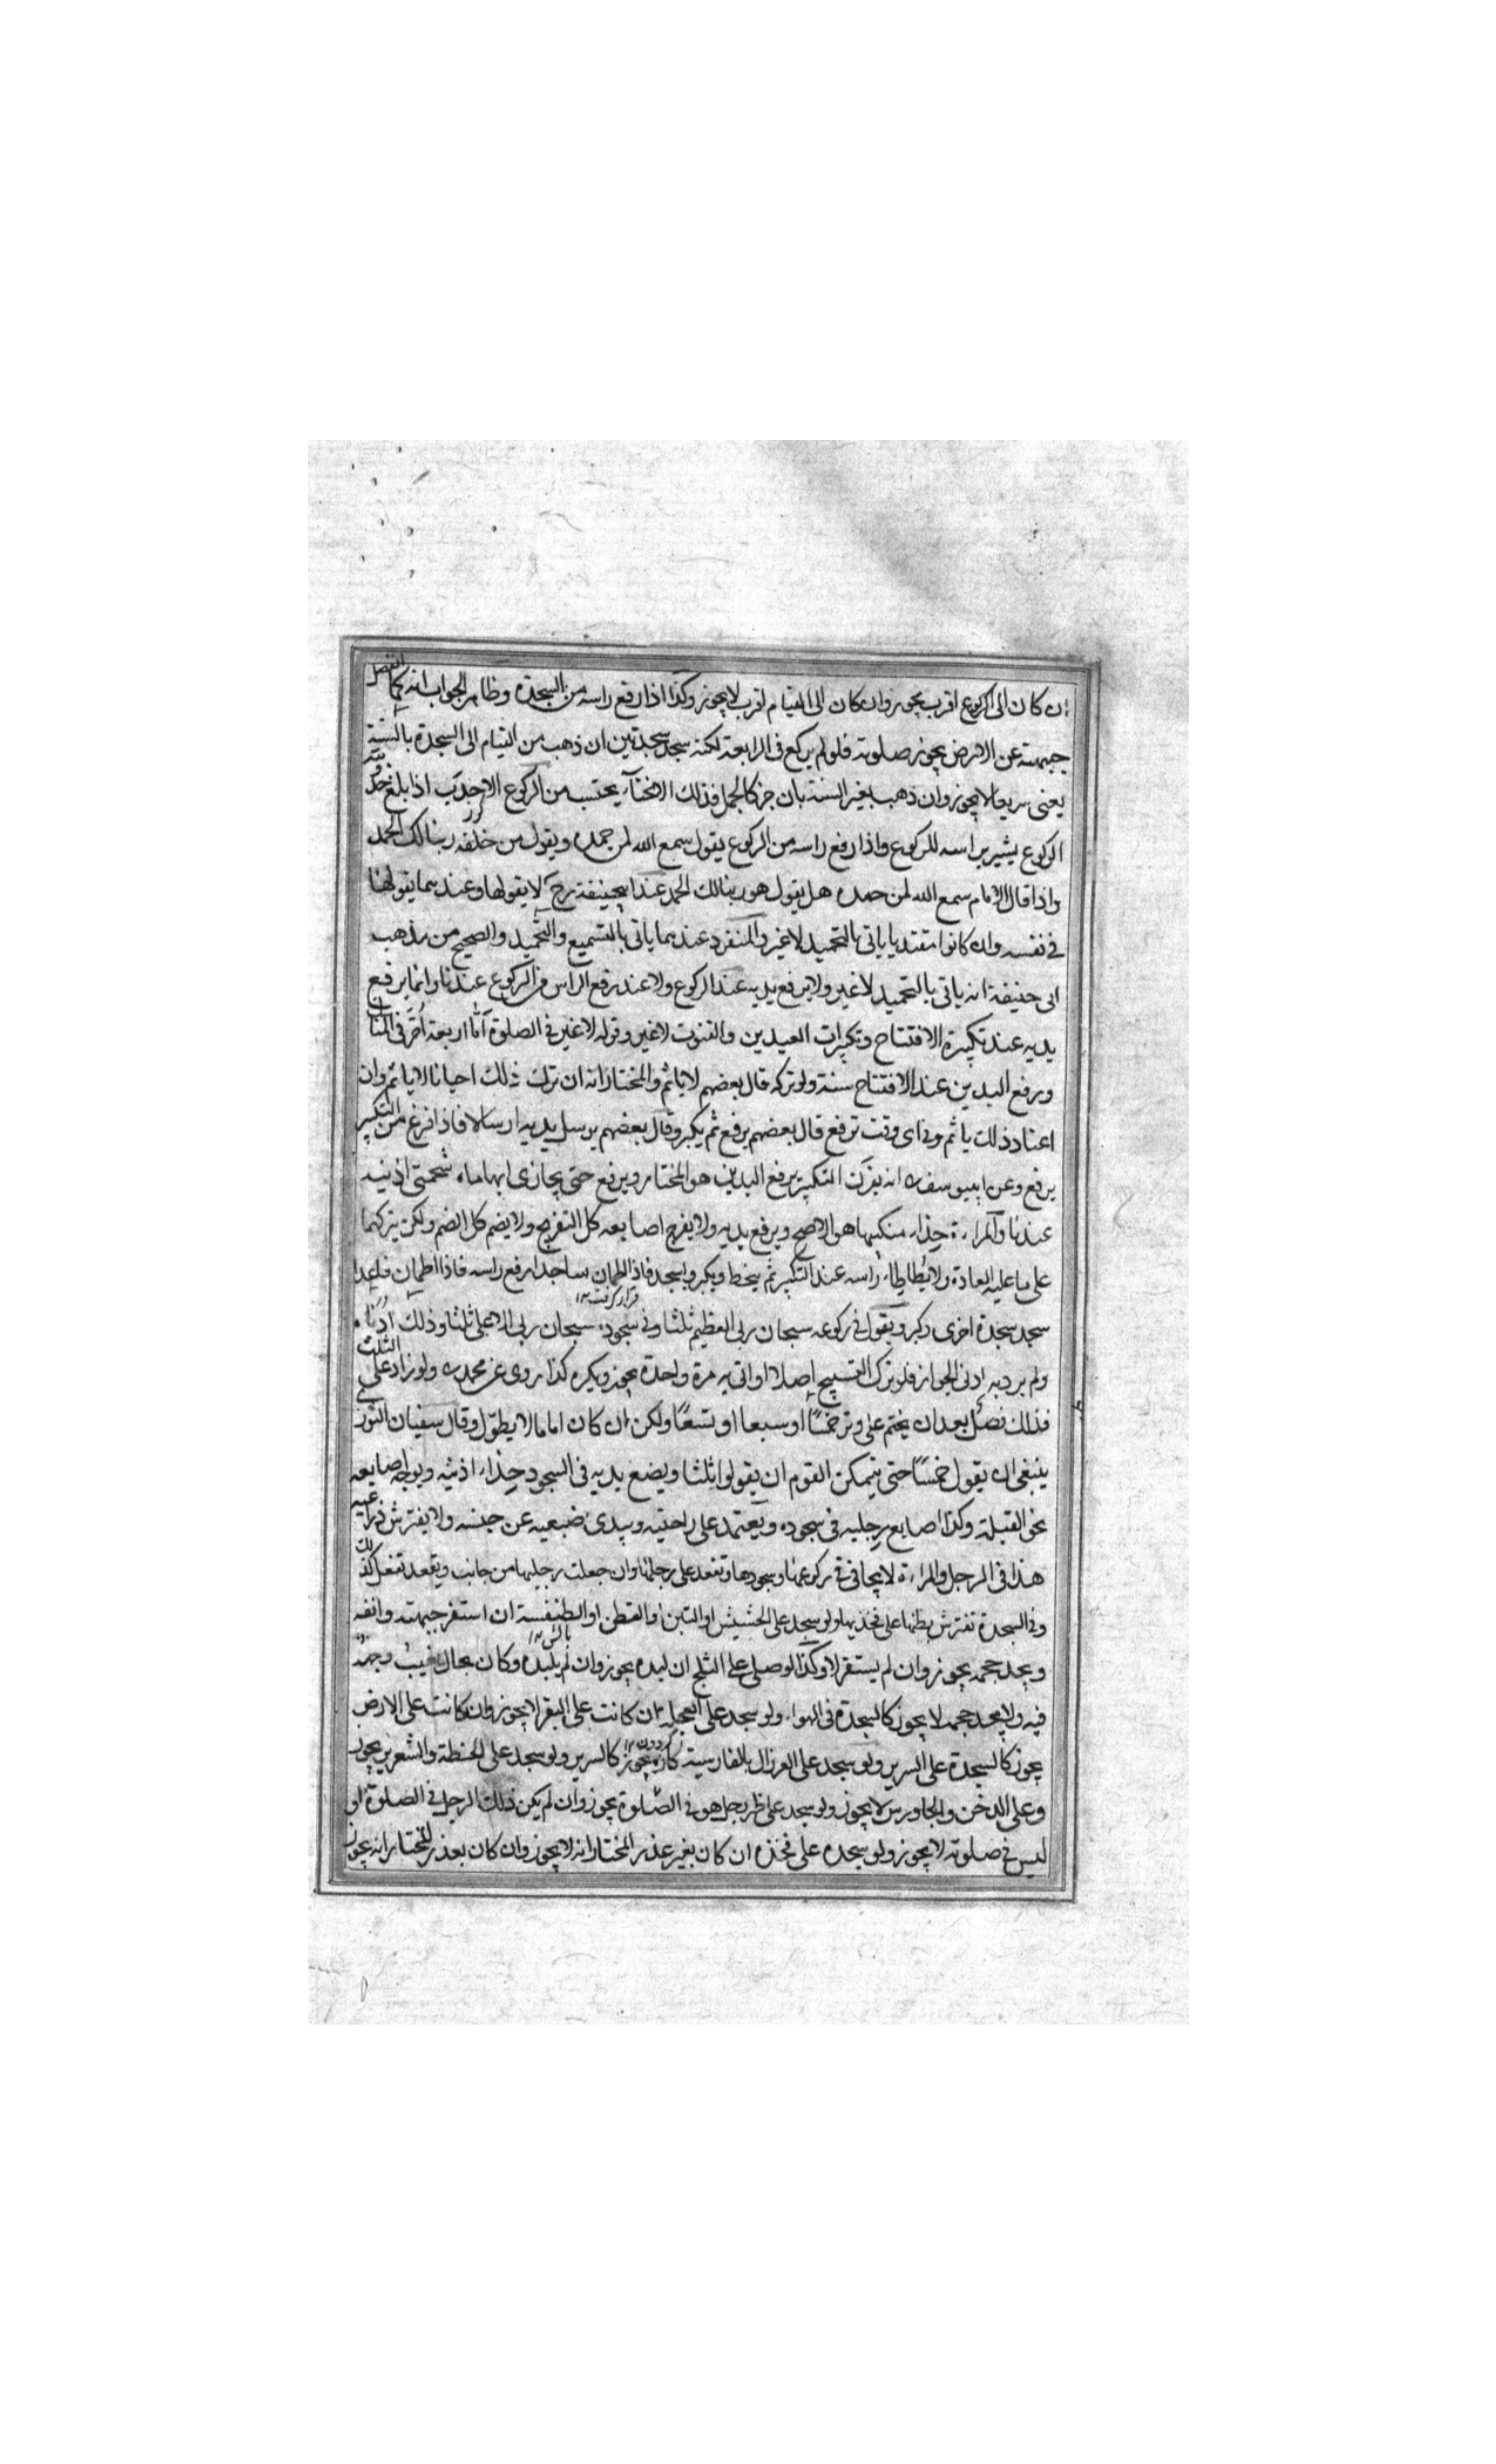 ان كان الى الركوع اقرب يجوز وان كان الى القيام اقرب لا يجوز وكذا اذا رفع راسه من السجدة وظاهر الجواب انه كما انفصل
جبهته عن الارض يجوز صلوته فلو لم يركع فى الرابعة لكنه سجد سجدتين ان ذهب من القيام الى السجدة بالسنة
يعنى سريعا لا يجوز وان ذهب بغير السنة بان خر كالجمل فذلك الانحناء يحتسب من الركوع الاحدب اذا بلغ حدوبته
الركوع يشير براسه للركوع واذا رفع راسه من الركوع يقول سمع الله لمن حمده ويقول من خلفه ربنا لك الحمد
واذا قال الامام سمع الله لمن حمده هل يقول هو ربنا لك الحمد عند ابيحنيفة رح لا يقولها وعندهما يقولها
فى نفسه وان كانوا مقتديا ياتى بالتحميد لا غير والمنفرد عندهما ياتى بالتسميع والتحميد والصحيح من مذهب
ابى حنيفة انه ياتى بالتحميد لا غير ولا يرفع يديه عند الركوع ولا عند رفع الراس من الركوع عندنا وانما يرفع
يديه عند تكبيرة الافتتاح وتكبيرات العيدين والقنوت لا غير وقوله لا غير فى الصلوة اما اربعة اخر فى المناسك
ورفع اليدين عند الافتتاح سنة ولو تركه قال بعضهم لا ياثم والمختار انه ان ترك ذلك احيانا لا ياثم وان
اعتاد ذلك ياثم وفى اى وقت ترفع قال بعضهم يرفع ثم يكبر وقال بعضهم يرسل يديه ارسالا فاذا فرغ من التكبير
يرفع وعن ابييوسف ره انه يقرن التكبير برفع اليدين هو المختار ويرفع حتى يحاذى ابهاماه شحمتى اذنيه
عندنا والمراءة حذاء منكبيها هو الاصح ويرفع يديه ولا يفرج اصابعه كل التفريج ولا يضم كل الضم ولكن يتركها
على ما عليه العادة ولا يطاطاء راسه عند التكبير ثم ينحط ويكبر ويسجد فاذا اطمان ساجدا رفع راسه فاذا اطمان قاعدا
قرار گرفت ۱۲
سجد سجدة اخرى وكبر ويقول فى ركوعه سبحان ربى العظيم ثلثا وفى سجوده سبحان ربى الاعلى ثلثا وذلك ادناه
ولم يرد به ادنى الجواز فلو ترك التسبيح اصلا او اتى به مرة واحدة يجوز ويكره كذا روى عن محمد ره ولو زاد على الثلث
فذلك فضل بعد ان يختم على وتر خمسًا او سبعا او تسعًا ولكن ان كان اماما لا يطول وقال سفيان الثورى
ينبغى ان يقول خمسًا حتى يتمكن القوم ان يقولوا ثلثا ويضع يديه فى السجود حذاء اذنيه ويوجه اصابعه
نحو القبلة وكذا اصابع رجليه فى سجوده ويعتمد على راحتيه ويبدى ضبعيه عن جنبه ولا يفترش ذراعيه
هذا فى الرجل والمراءة لا يجافى فى ركوعها وسجودها وتقعد على رجلها وان جعلت رجليها من جانب ويقعد تفعل كذلك
وفى السجدة تفترش بطنها على فخذيها ولو سجد على الحشيش او التبن او القطن او الطنفسة ان استقر جبهته وانفه
بالش ۱۲
ويجد حجمه يجوز وان لم يستقر لا وكذا لو صلى على الثلج ان لبده يجوز وان لم يلبده وكان بحال يغيب وجهه
فيه ولا يجد حجمه لا يجوز كالسجدة فى الهواء ولو سجد على العجلة ان كانت على البقر لا يجوز وان كانت على الارض
گردون ۱۲
يجوز كالسجدة على السرير ولو سجد على العرزال بالفارسية كازه يجوز كالسرير ولو سجد على الحنطة والشعير يجوز
وعلى الدخن والجاورس لا يجوز ولو سجد على ظهر رجل هو فى الصلوة يجوز وان لم يكن ذلك الرجل فى الصلوة او
ليس فى صلوته لا يجوز ولو سجد على فخذه ان كان بغير عذر المختار انه لا يجوز وان كان بعذر المختار انه يجوز